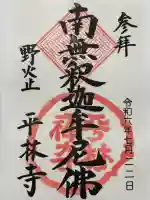 参拝
令和六年七月二一日
南無釈迦牟尼佛
野火止
平林寺